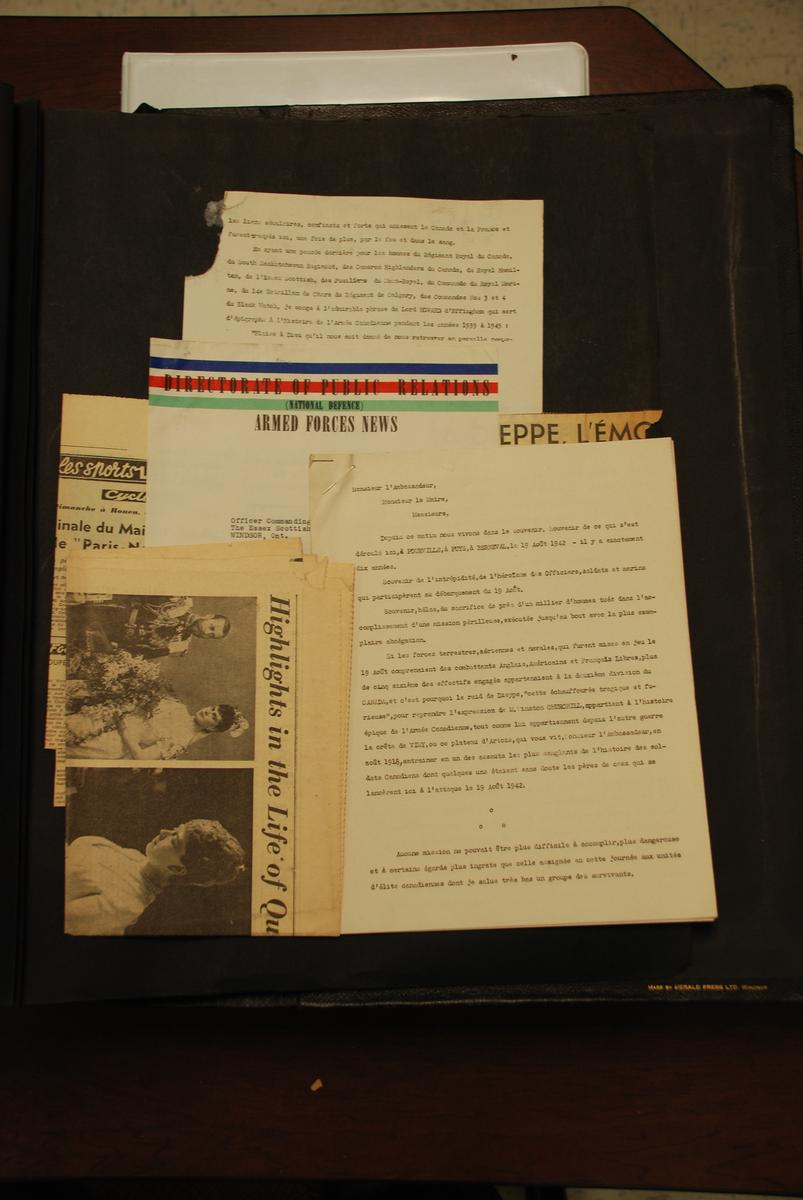 les liens séculaires, confiants et forts qui unissent le Canada et la France et
furent trempés ici, une fois de plus, par le feu et dans le sang.
En ayant une pensée dernière pour les hommes du Régiment Royal du Canada,
du South Saskatchewan Regiment, des Cameron Highlanders du Canada, du Royal Hamil-
ton, de l'Essex Scottish, des Fusiliers du Mont-Royal, du Commando du Royal Mari-
ne, du 14e Bataillon de Chars du Régiment de Calgary, des Commandos Nos 3 et 4
du Black Watch, je songe à l'admirable phrase de Lord HOWARD d'Effingham qui sert
d'épigraphe à l'Histoire de l'Armée Canadienne pendant les années 1939 à 1945 :
"Plaise à Dieu qu'il nous soit donné de nous retrouver en pareille compa-
DIRECTORATE OF PUBLIC RELATIONS
(NATIONAL DEFENCE)
ARMED FORCES NEWS
Officer Commanding
The Essex Scottish
WINDSOR, Ont.
EPPE, L'ÉMO
Les sports
Cycl
imanche à Rouen.
inale du Mai
e "Paris-N
Highlights in the Life of Qu
Monsieur l'Ambassadeur,
Monsieur le Maire,
Messieurs,
Depuis ce matin nous vivons dans le souvenir. Souvenir de ce qui s'est
déroulé ici, à POURVILLE, à PUYS, à BERNEVAL, le 19 Août 1942 - il y a exactement
dix années.
Souvenir de l'intrépidité, de l'héroïsme des Officiers, soldats et marins
qui participèrent au débarquement du 19 Août.
Souvenir, hélas, du sacrifice de près d'un millier d'hommes tués dans l'ac-
complissement d'une mission périlleuse, exécutée jusqu'au bout avec la plus exem-
plaire abnégation.
Si les forces terrestres, aériennes et navales, qui furent mises en jeu le
19 Août comprenaient des combattants Anglais, Américains et Français Libres, plus
de cinq sixième des effectifs engagés appartenaient à la deuxième division du
CANADA, et c'est pourquoi le raid de Dieppe, "cette échauffourée tragique et fu-
rieuse", pour reprendre l'expression de M. Winston CHURCHILL, appartient à l'histoire
épique de l'Armée Canadienne, tout comme lui appartiennent depuis l'autre guerre
la crête de VIMY, ou ce plateau d'Artois, qui vous vit, Monsieur l'Ambassadeur, en
août 1918, entrainer en un des assauts les plus sanglants de l'histoire des sol-
dats Canadiens dont quelques uns étaient sans doute les pères de ceux qui se
lancèrent ici à l'attaque le 19 Août 1942.
o
o o
Aucune mission ne pouvait être plus difficile à accomplir, plus dangereuse
et à certains égards plus ingrate que celle assignée en cette journée aux unités
d'élite canadiennes dont je salue très bas un groupe des survivants.
MADE BY HERALD PRESS LTD. WINDSOR